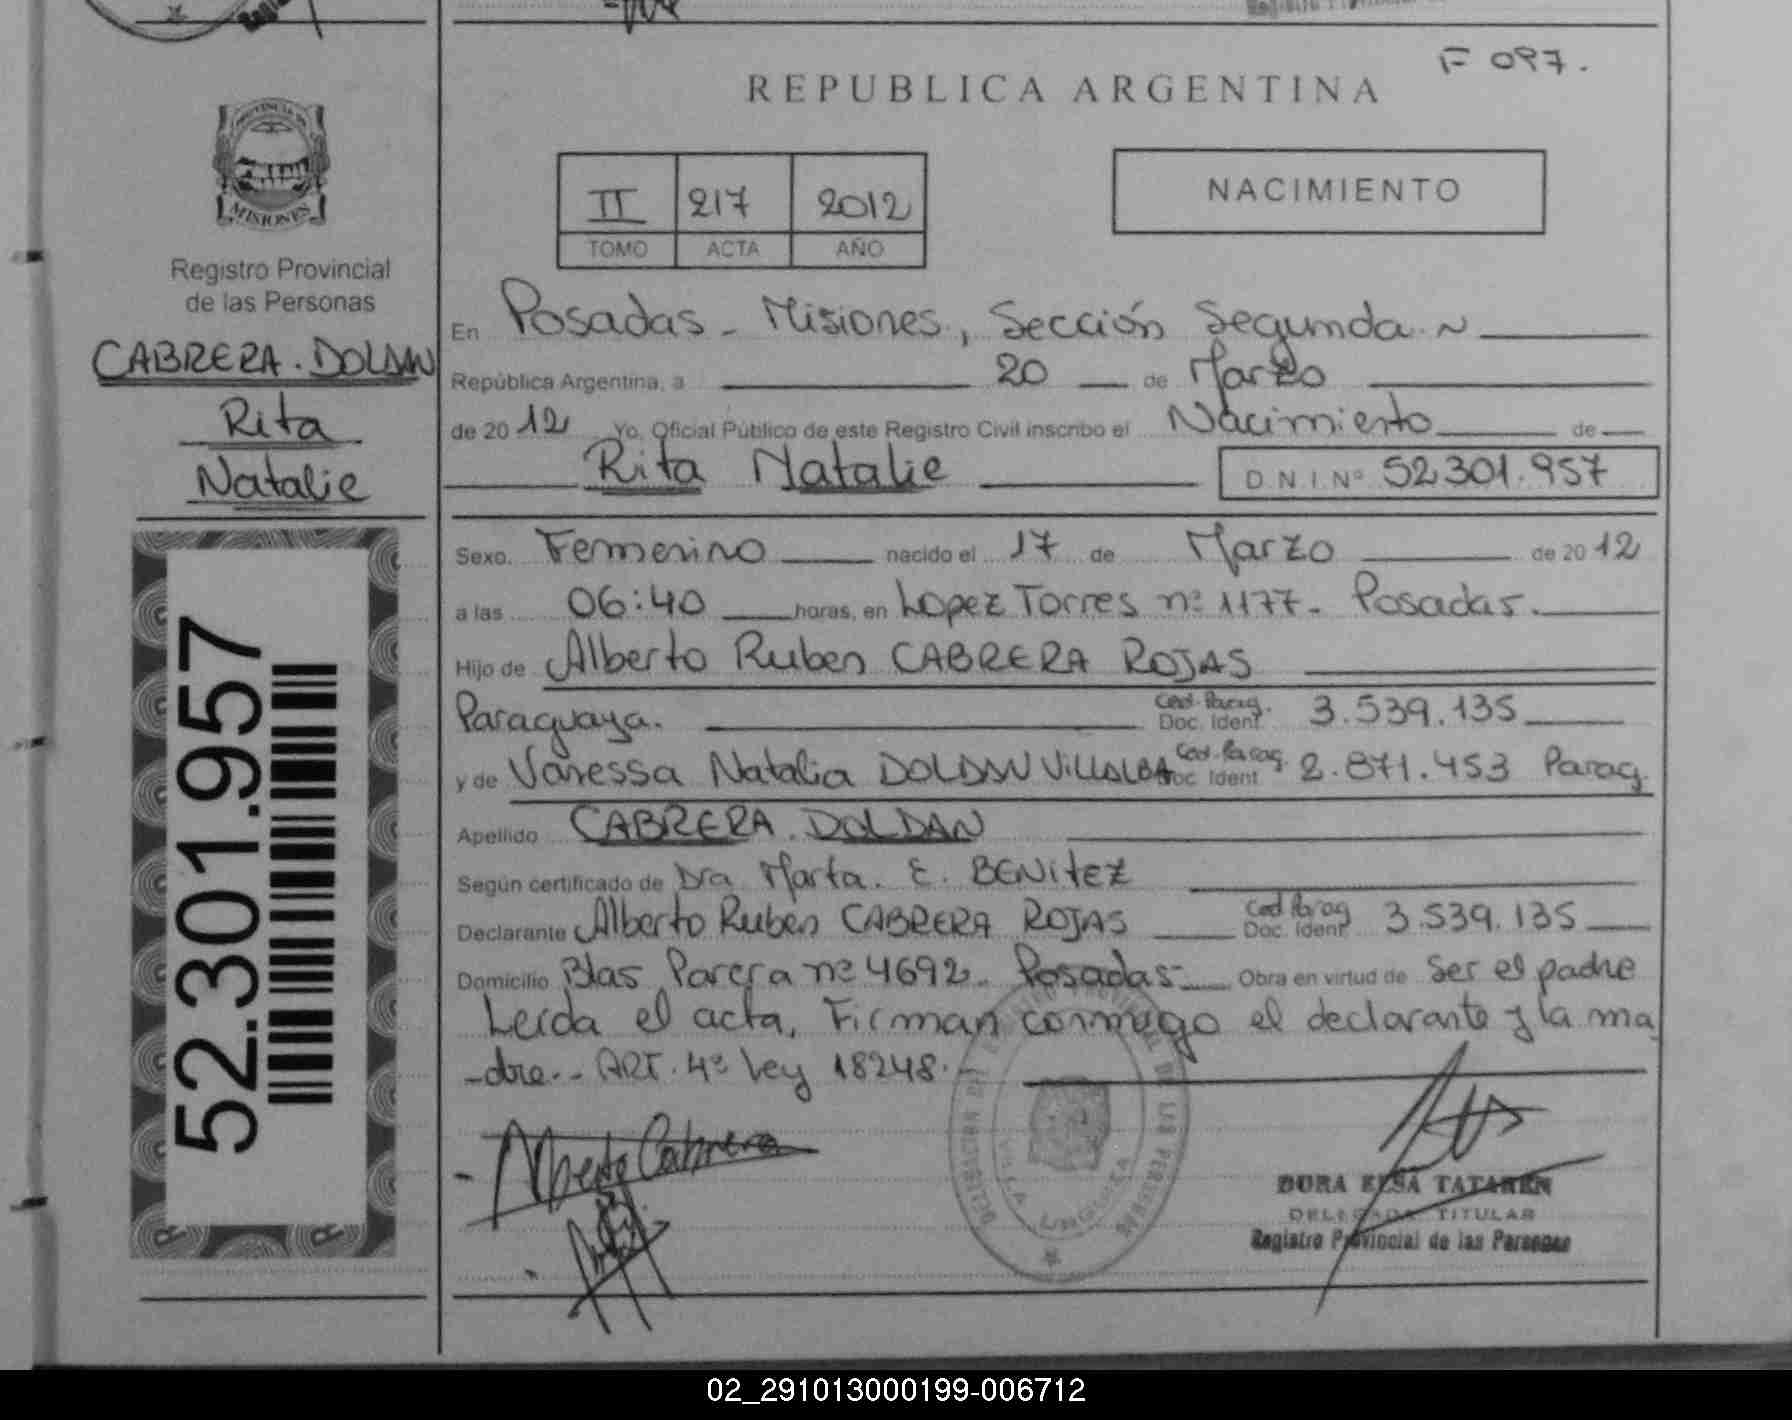 F 097.
REPUBLICA ARGENTINA
PROVINCIA DE
MISIONES
II 217 2012
TOMO ACTA AÑO
NACIMIENTO
Registro Provincial
de las Personas
CABRERA. DOLDAN
Rita
Natalie
52.301.957
En Posadas - Misiones, Sección Segunda. ~
República Argentina, a 20 de Marzo
de 2012 Yo, Oficial Público de este Registro Civil inscribo el Nacimiento de
Rita Natalie D.N.I.Nº 52.301.957
Sexo. Femenino nacido el 17 de Marzo de 2012
a las 06:40 horas, en Lopez Torres nº 1177. Posadas.
Hijo de Alberto Ruben CABRERA ROJAS
Paraguaya. Ced. Parag. Doc. Ident. 3.539.135
y de Vanessa Natalia DOLDAN VILLALBA Ced. Parag. Doc. Ident. 2.871.453 Parag.
Apellido CABRERA. DOLDAN
Según certificado de Dra Marta. E. BENITEZ
Declarante Alberto Ruben CABRERA ROJAS Ced Parag Doc. Ident. 3.539.135
Domicilio Blas Parera nº 4692. Posadas - Obra en virtud de Ser el padre
Leida el acta, Firman conmigo el declarante y la ma
-dre.- ART. 4º Ley 18248.-
Alberto Cabrera
DORA ELSA TATAREN
DELEGADA TITULAR
Registro Provincial de las Personas
02_291013000199-006712